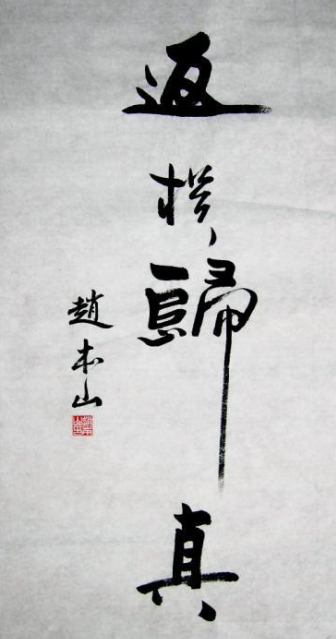 返樸歸真
趙本山